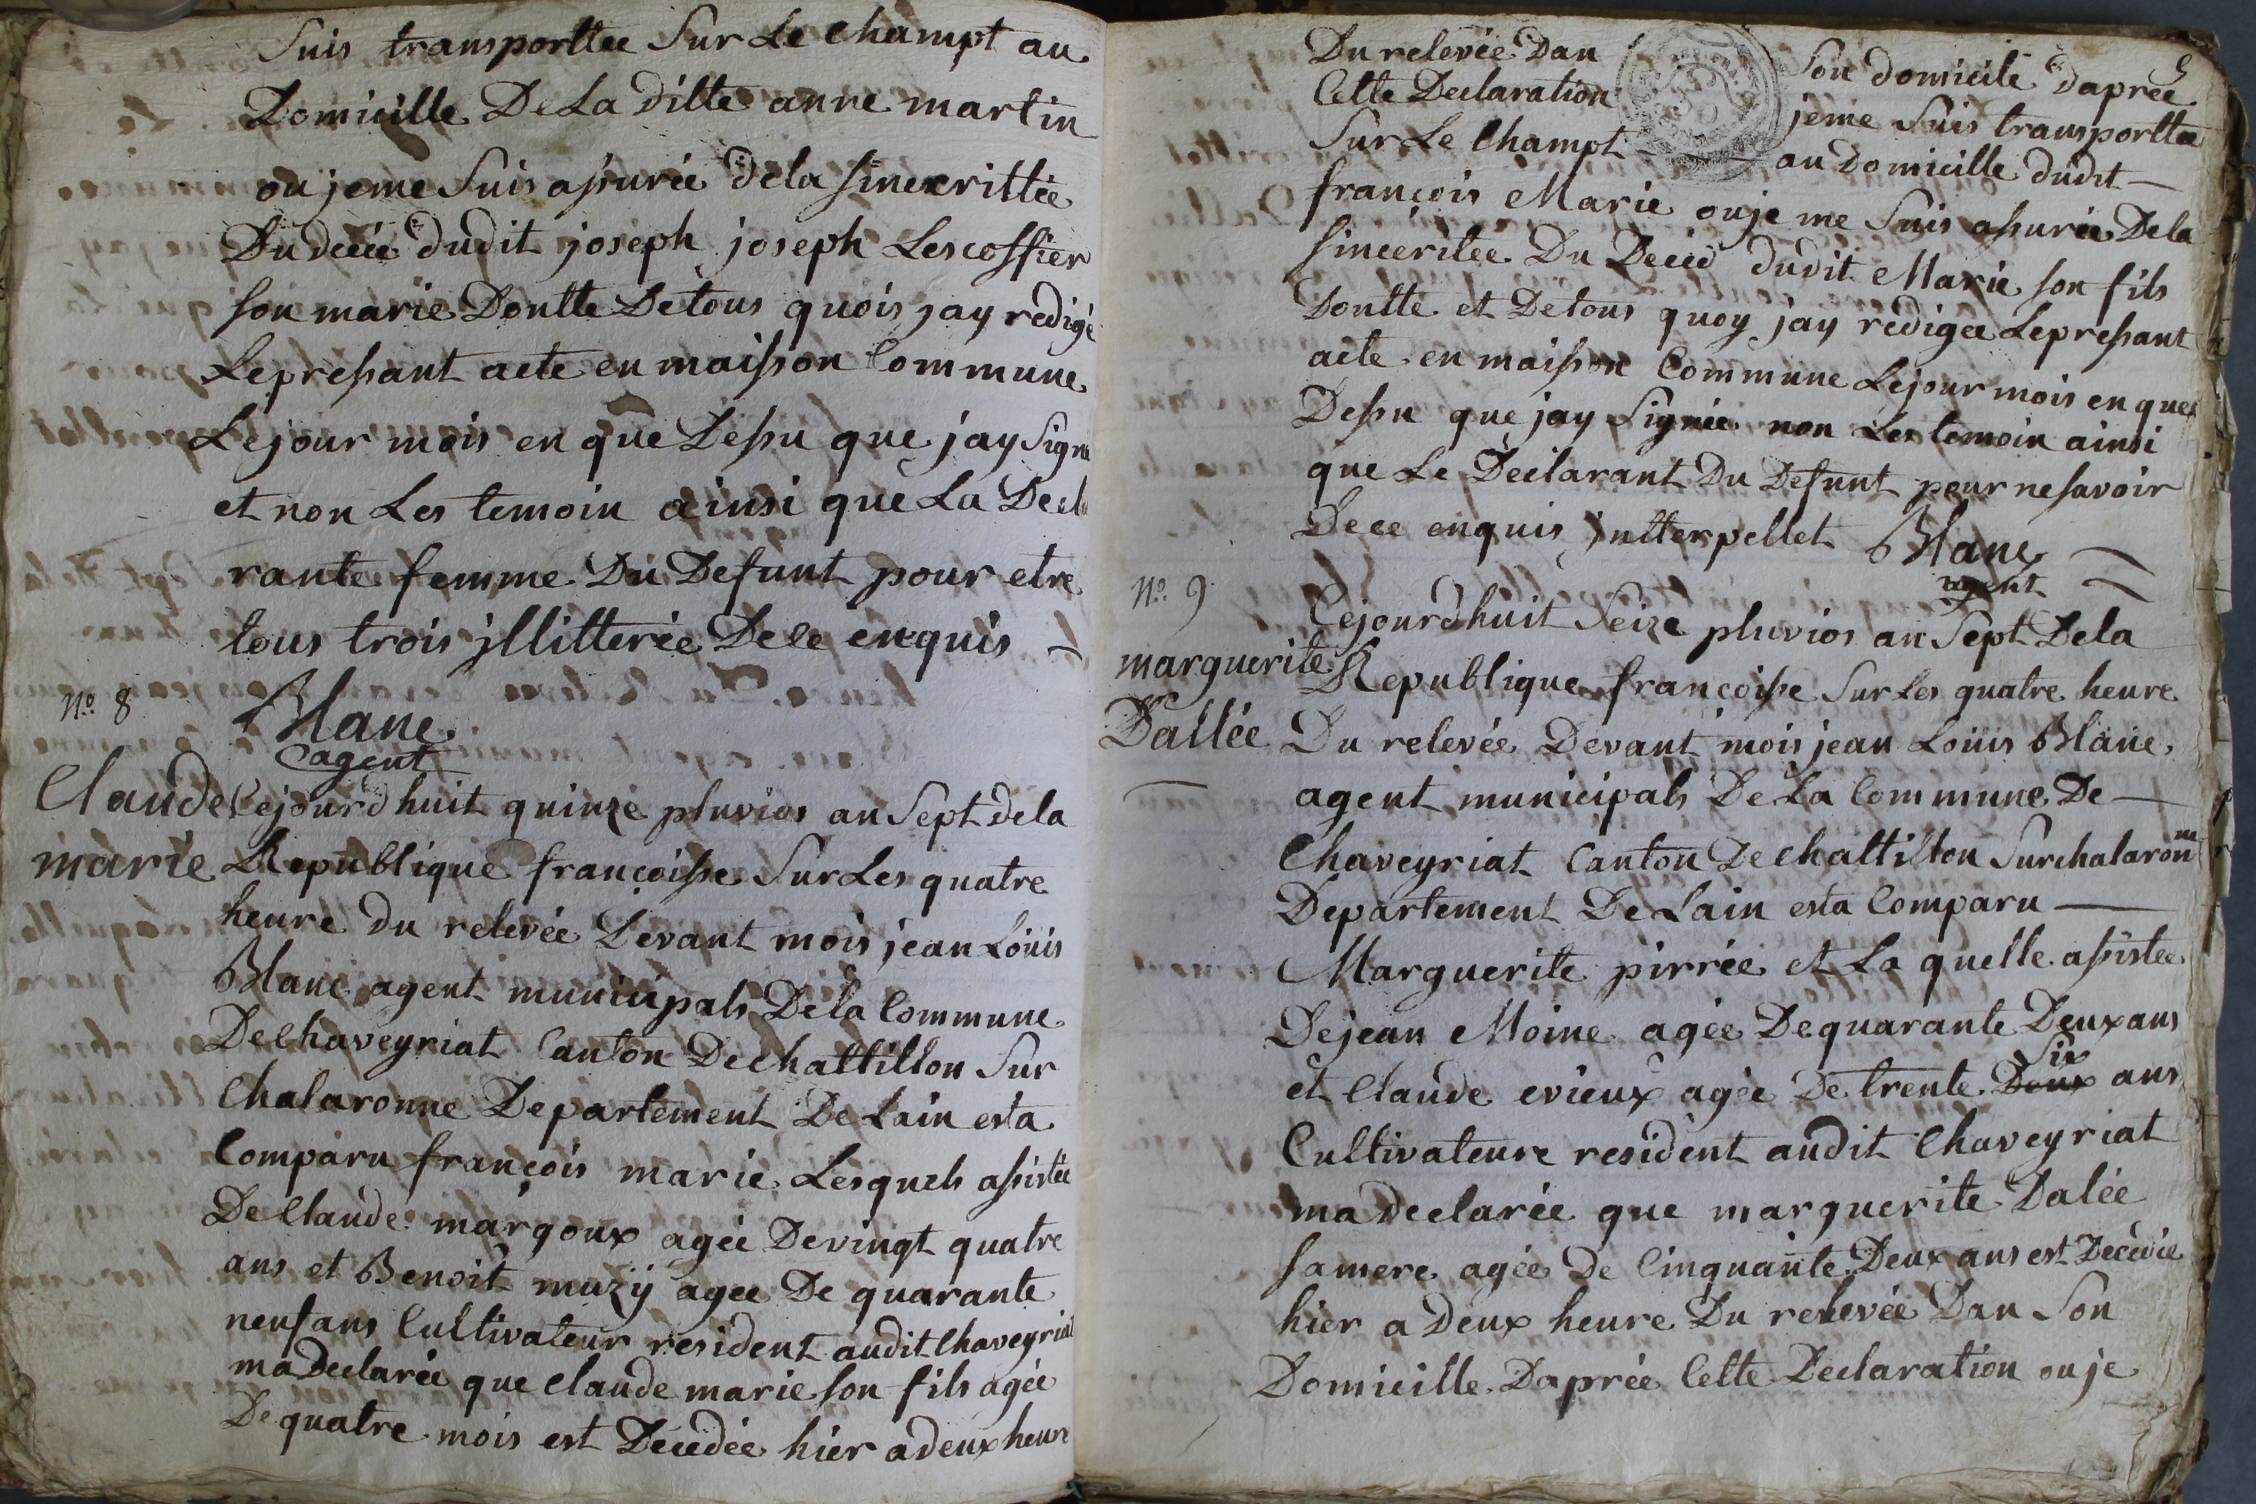 Suis transporttée Sur Le Champt au
Domicille De La ditte anne martin
ou jeme Suis assurée dela sincerittée
Du décée dudit joseph joseph Lescoffier
son marie Dontte De tous quois jay redigé
Le pressant acte en maisson Commune
Le jour mois en que Dessu que jay Signé
et non Les temoin ainsi que La Decla
rante femme Du Defunt pour etre
tous trois jllitterée De ce enquis
Blanc
agent
N.o 8
Claude
marie
Cejourdhuit quinze pluvios an Sept dela
Republique françoisse Sur Les quatre
heure du relevée Devant mois jean Loüis
Blanc agent municipals De la Commune
De Chaveyriat Canton De chattillon Sur
Chalaronne Departement De Lain esta
Comparu françois marie Lesquels assistée
De Claude margoux agée De vingt quatre
ans et Benoit muzÿ agée De quarante
neuf ans Cultivateur resident audit Chaveyriat
ma Declarée que Claude marie son fils agée
De quatre mois est Décédée hier a deux heure
Du relevée Dan Son domicile daprée
Cette Declaration jeme Suis transporttée
Sur Le Champt au Domicille dudit
françois Marie ou je me Suis assurée De la
sinceritée Du Décéd dudit Marie son fils
Dontte et De tous quoy jay rédigée Le pressant
acte en maisson Commune Le jour mois en que
Dessu que jay Signée non Les temoin ainsi
que Le Déclarant Du Defunt pour ne savoir
De ce enquis jntterpellet Blanc
agent
N.o 9
marguerite
Dallée
Cejourdhuit Seize pluvios an Sept De la
Republique françoisse Sur Les quatre heure
Du relevée Devant mois jean Loüis Blanc
agent municipals De La Commune De
Chaveyriat Canton De Chattillon Surchalaronne
Departement De Lain esta Comparu
Marguerite pirrée et La quelle assistée
De jean Moine agée De quarante Deux ans
et Claude evieux agée De trente Deux Six ans
Cultivateure resident audit Chaveyriat
ma declarée que marguerite Dalée
sa mere agée de Cinquante Deux ans est Décédée
hier a Deux heure Du relevée Dan Son
Domicille Daprée Cette Declaration ou je